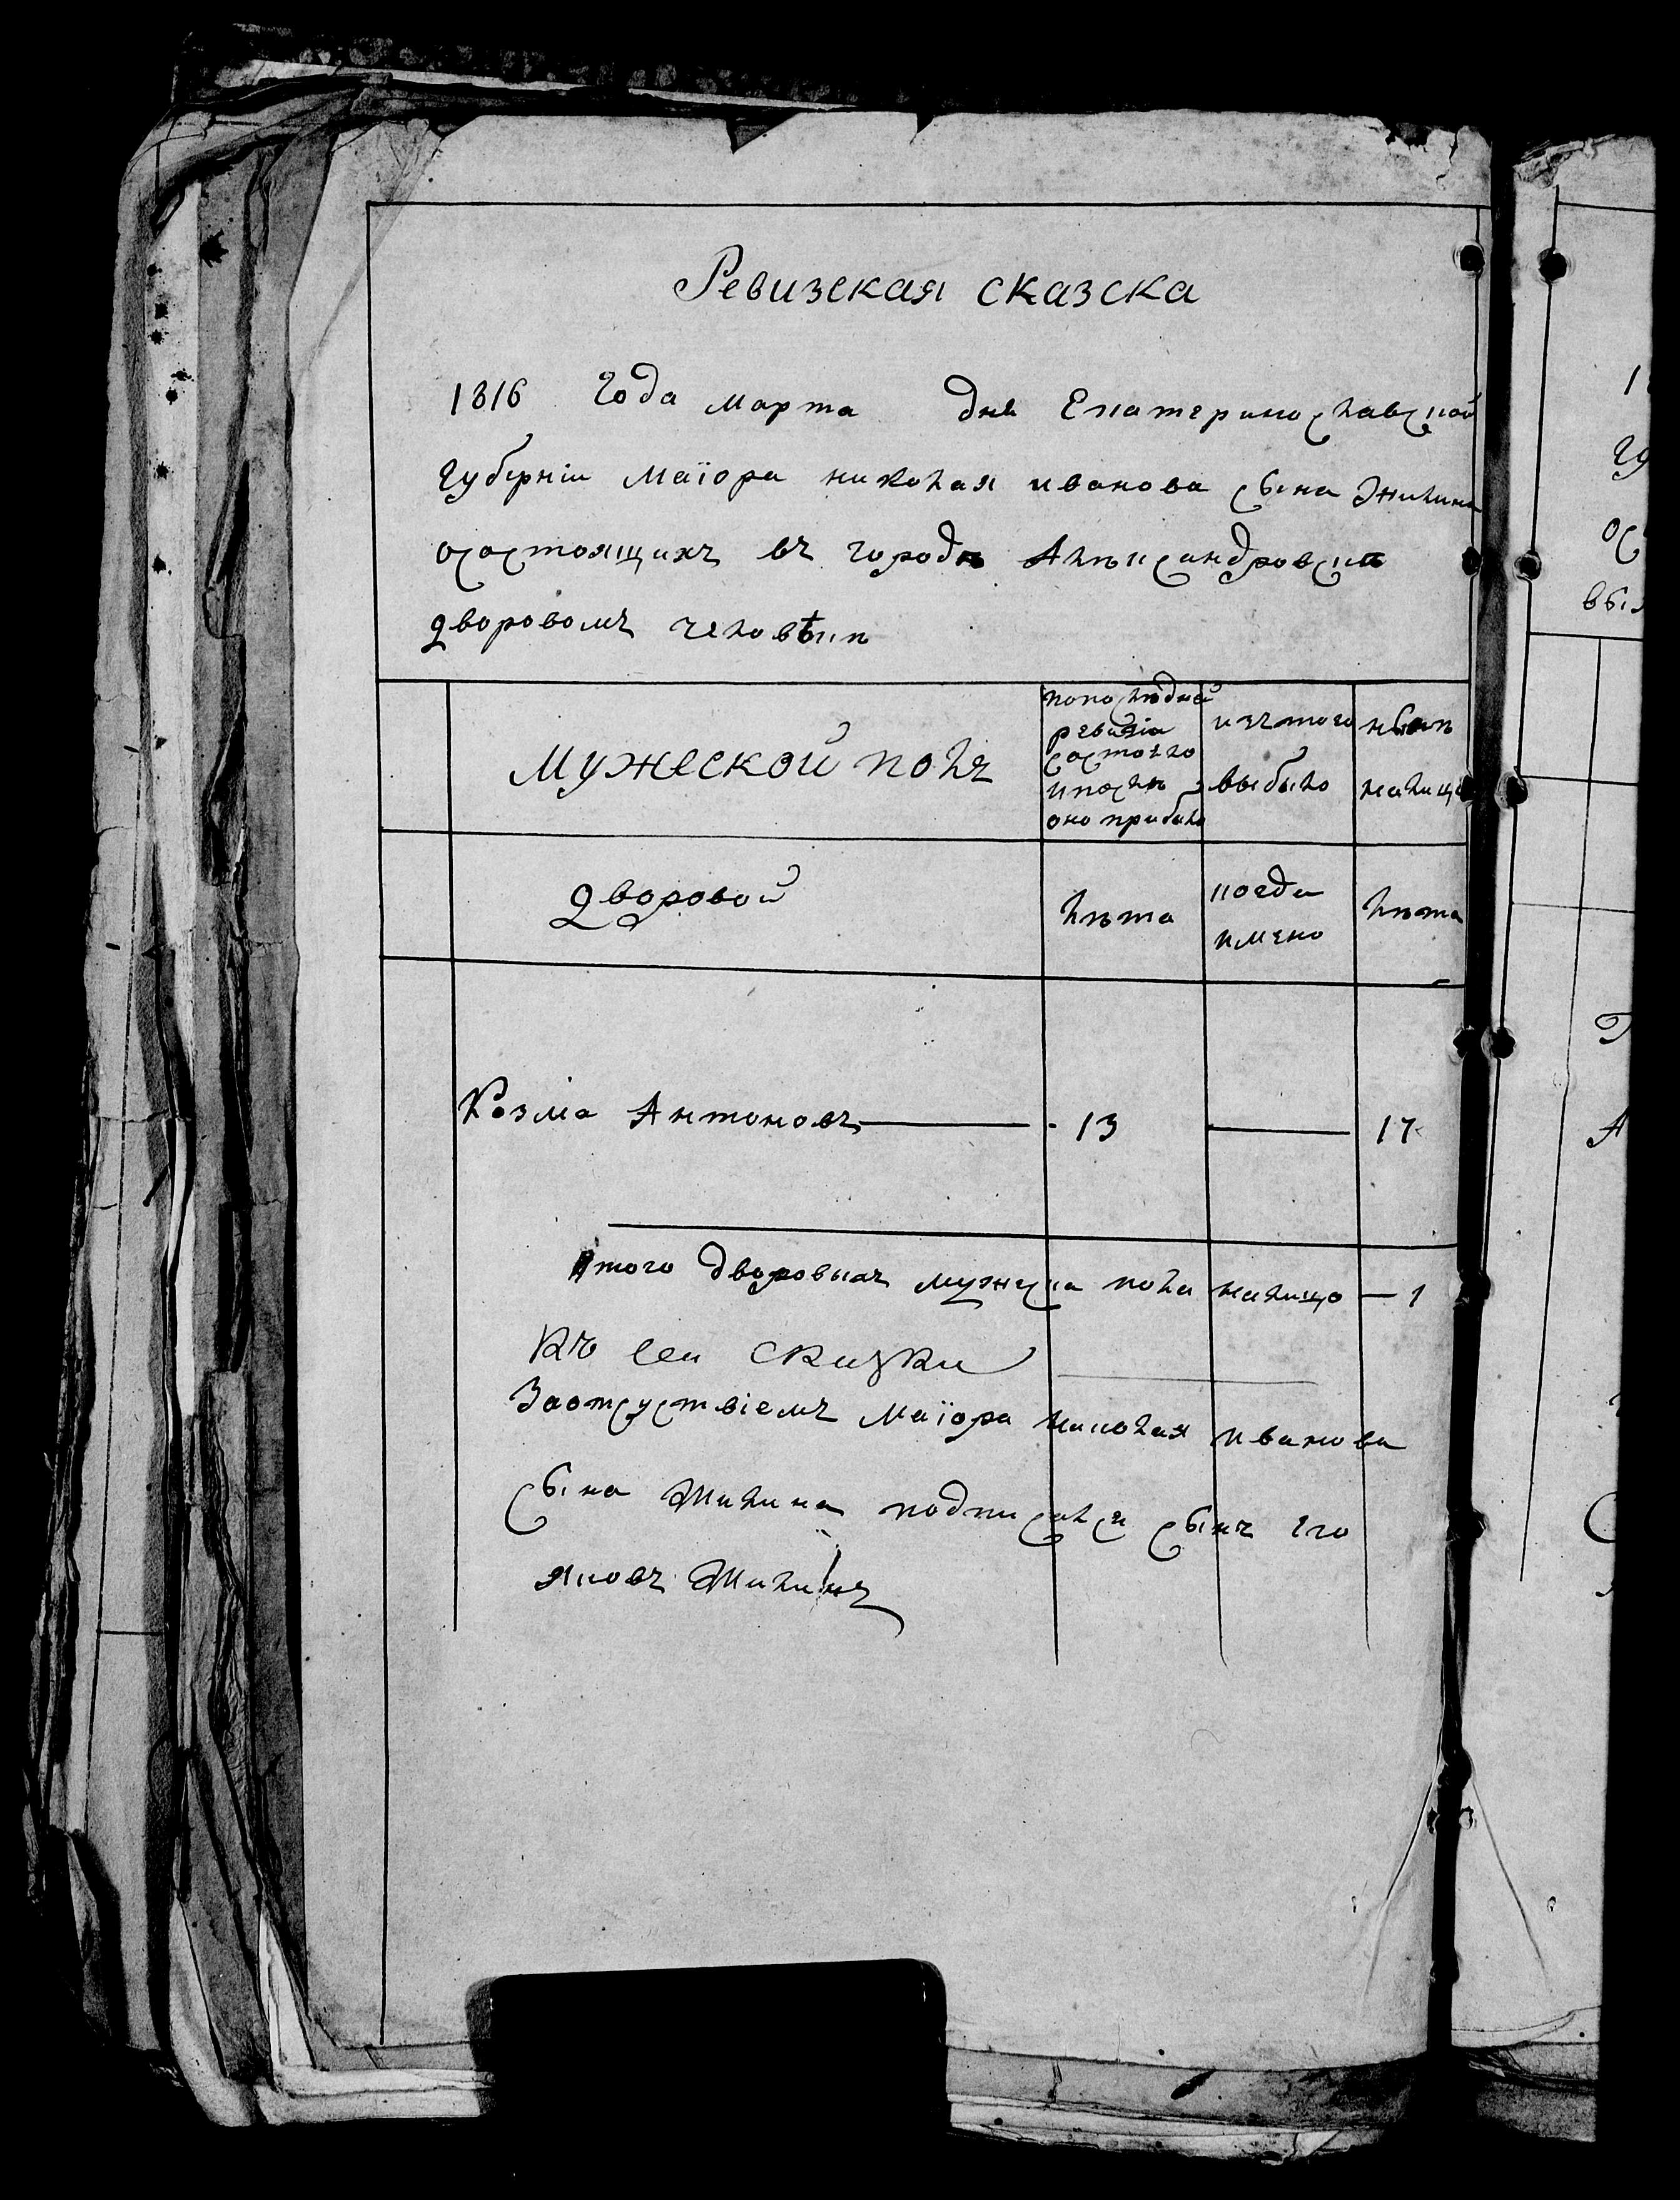 Ревизская сказска
1816 Года марта дня Екатеринославской
Губерніи Маіора николая иванова сына Жилина
осостоящихъ въ городѣ Алѣксандровски
дворовомъ человѣки
мужеской полъ
попослѣдней
ревизіи
состояло
ипослѣ
оно прибыло
изъ того
выбыло
нынѣ
налицо
дворовой
лѣта
когда
имено
лѣта
Козма Антоновъ — 13 — 17
Итого дворовыхъ мужеска пола налицо — 1
Къ сеи скизки
Заотсуствіемъ Маіора николая иванова
сына Жилина подписался сынъ его
яковъ Жилинъ